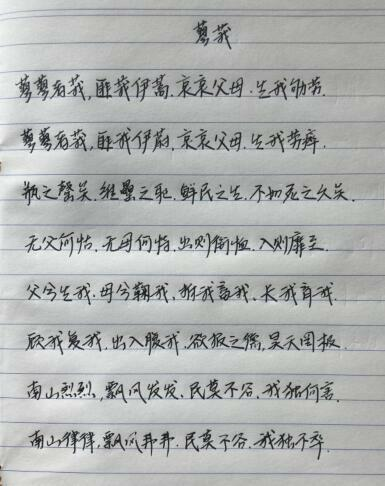 蓼莪
蓼蓼者莪,匪莪伊蒿.哀哀父母.生我劬劳.
蓼蓼者莪,匪我伊蔚.哀哀父母.生我劳瘁.
瓶之罄矣.维罍之耻.鲜民之生.不如死之久矣.
无父何怙.无母何恃.出则衔恤.入则靡至.
父兮生我.母兮鞠我.拊我畜我.长我育我.
顾我复我.出入腹我.欲报之德.昊天罔极.
南山烈烈,飘风发发.民莫不谷.我独何害.
南山律律,飘风弗弗.民莫不谷.我独不卒.